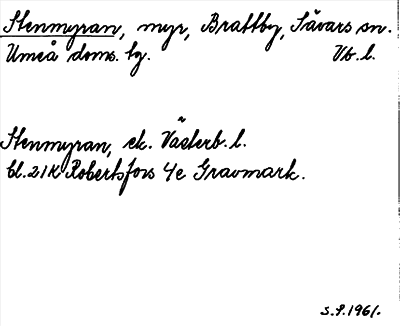 Stenmyran, myr, Brattby, Sävars sn.
Umeå doms. tg. Vb. l.
Stenmyran, ek. Västerb. l.
bl. 21K Robertsfors 4e Gravmark.
S.P. 1961.